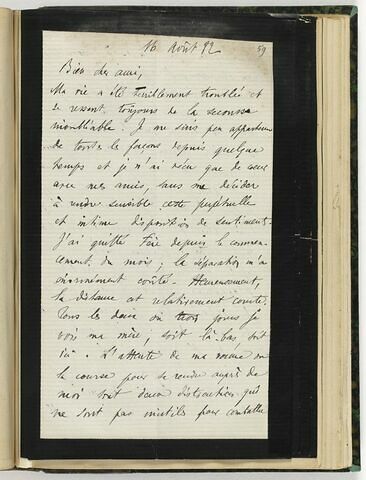 16 Août 92
59
Bien cher ami,
Ma vie a été terriblement troublée et
se ressent toujours de la secousse
inoubliable. Je me suis peu appartenu
de toutes les façons depuis quelque
temps et je n'ai vécu que de cœur
avec mes amis, sans me décider
à rendre sensible cette perpétuelle
et intime disposition de sentiment.
J'ai quitté depuis le commen-
cement du mois ; la séparation m'a
énormément coûté. Heureusement,
la distance est relativement courte.
Tous les deux ou trois jours je
vois ma mère, soit là-bas, soit
ici. L'attente de ma venue ou
la course pour se rendre auprès de
moi sont deux distractions qui
ne sont pas inutiles pour combattre